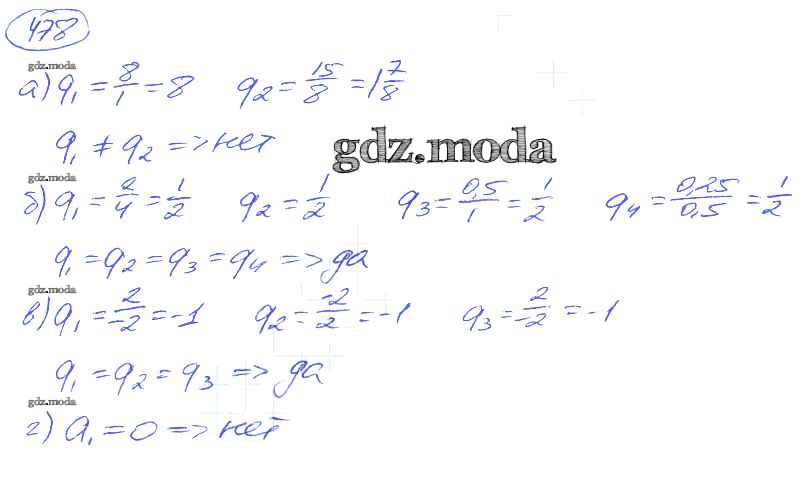 478
gdz.moda
а) q₁ = 8/1 = 8 q₂ = 15/8 = 1 7/8
q₁ ≠ q₂ => нет
gdz.moda
gdz.moda
б) q₁ = 2/4 = 1/2 q₂ = 1/2 q₃ = 0,5/1 = 1/2 q₄ = 0,25/0,5 = 1/2
q₁ = q₂ = q₃ = q₄ => да
gdz.moda
в) q₁ = 2/-2 = -1 q₂ = -2/2 = -1 q₃ = 2/-2 = -1
q₁ = q₂ = q₃ => да
gdz.moda
г) a₁ = 0 => нет